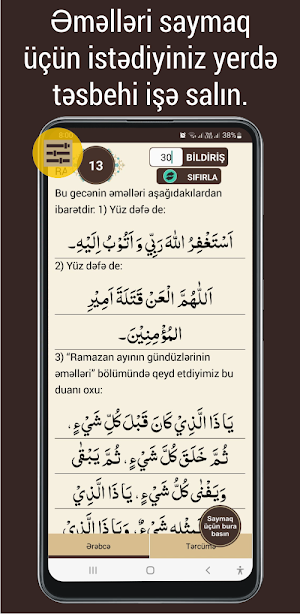 Əməlləri saymaq
üçün istədiyiniz yerdə
təsbehi işə salın.
38%
13
30
BİLDİRİŞ
SIFIRLA
RA
Bu gecənin əməlləri aşağıdakılardan
ibarətdir: 1) Yüz dəfə de:
اَسْتَغْفِرُ اللّٰهَ رَبِّي وَ اَتُوْبُ اِلَيْهِ۔
2) Yüz dəfə de:
اَللّٰهُمَّ الْعَنْ قَتَلَةَ اَمِيْرِ
المُؤْمِنِيْنَ۔
3) “Ramazan ayının gündüzlərinin
əməlləri” bölümündə qeyd etdiyimiz bu
duanı oxu:
يَاذَا الَّذِيْ كَانَ قَبْلَ كُلِّ شَيْءٍ،
ثُمَّ خَلَقَ كُلَّ شَيْءٍ، ثُمَّ يَبْقٰى
وَيَفْنٰى كُلُّ شَيْءٍ، يَاذَا الَّذِيْ
شَيْءٌ، وَيَاذَا الَّذِيْ
Saymaq
üçün bura
basın
Ərəbcə
Tərcümə